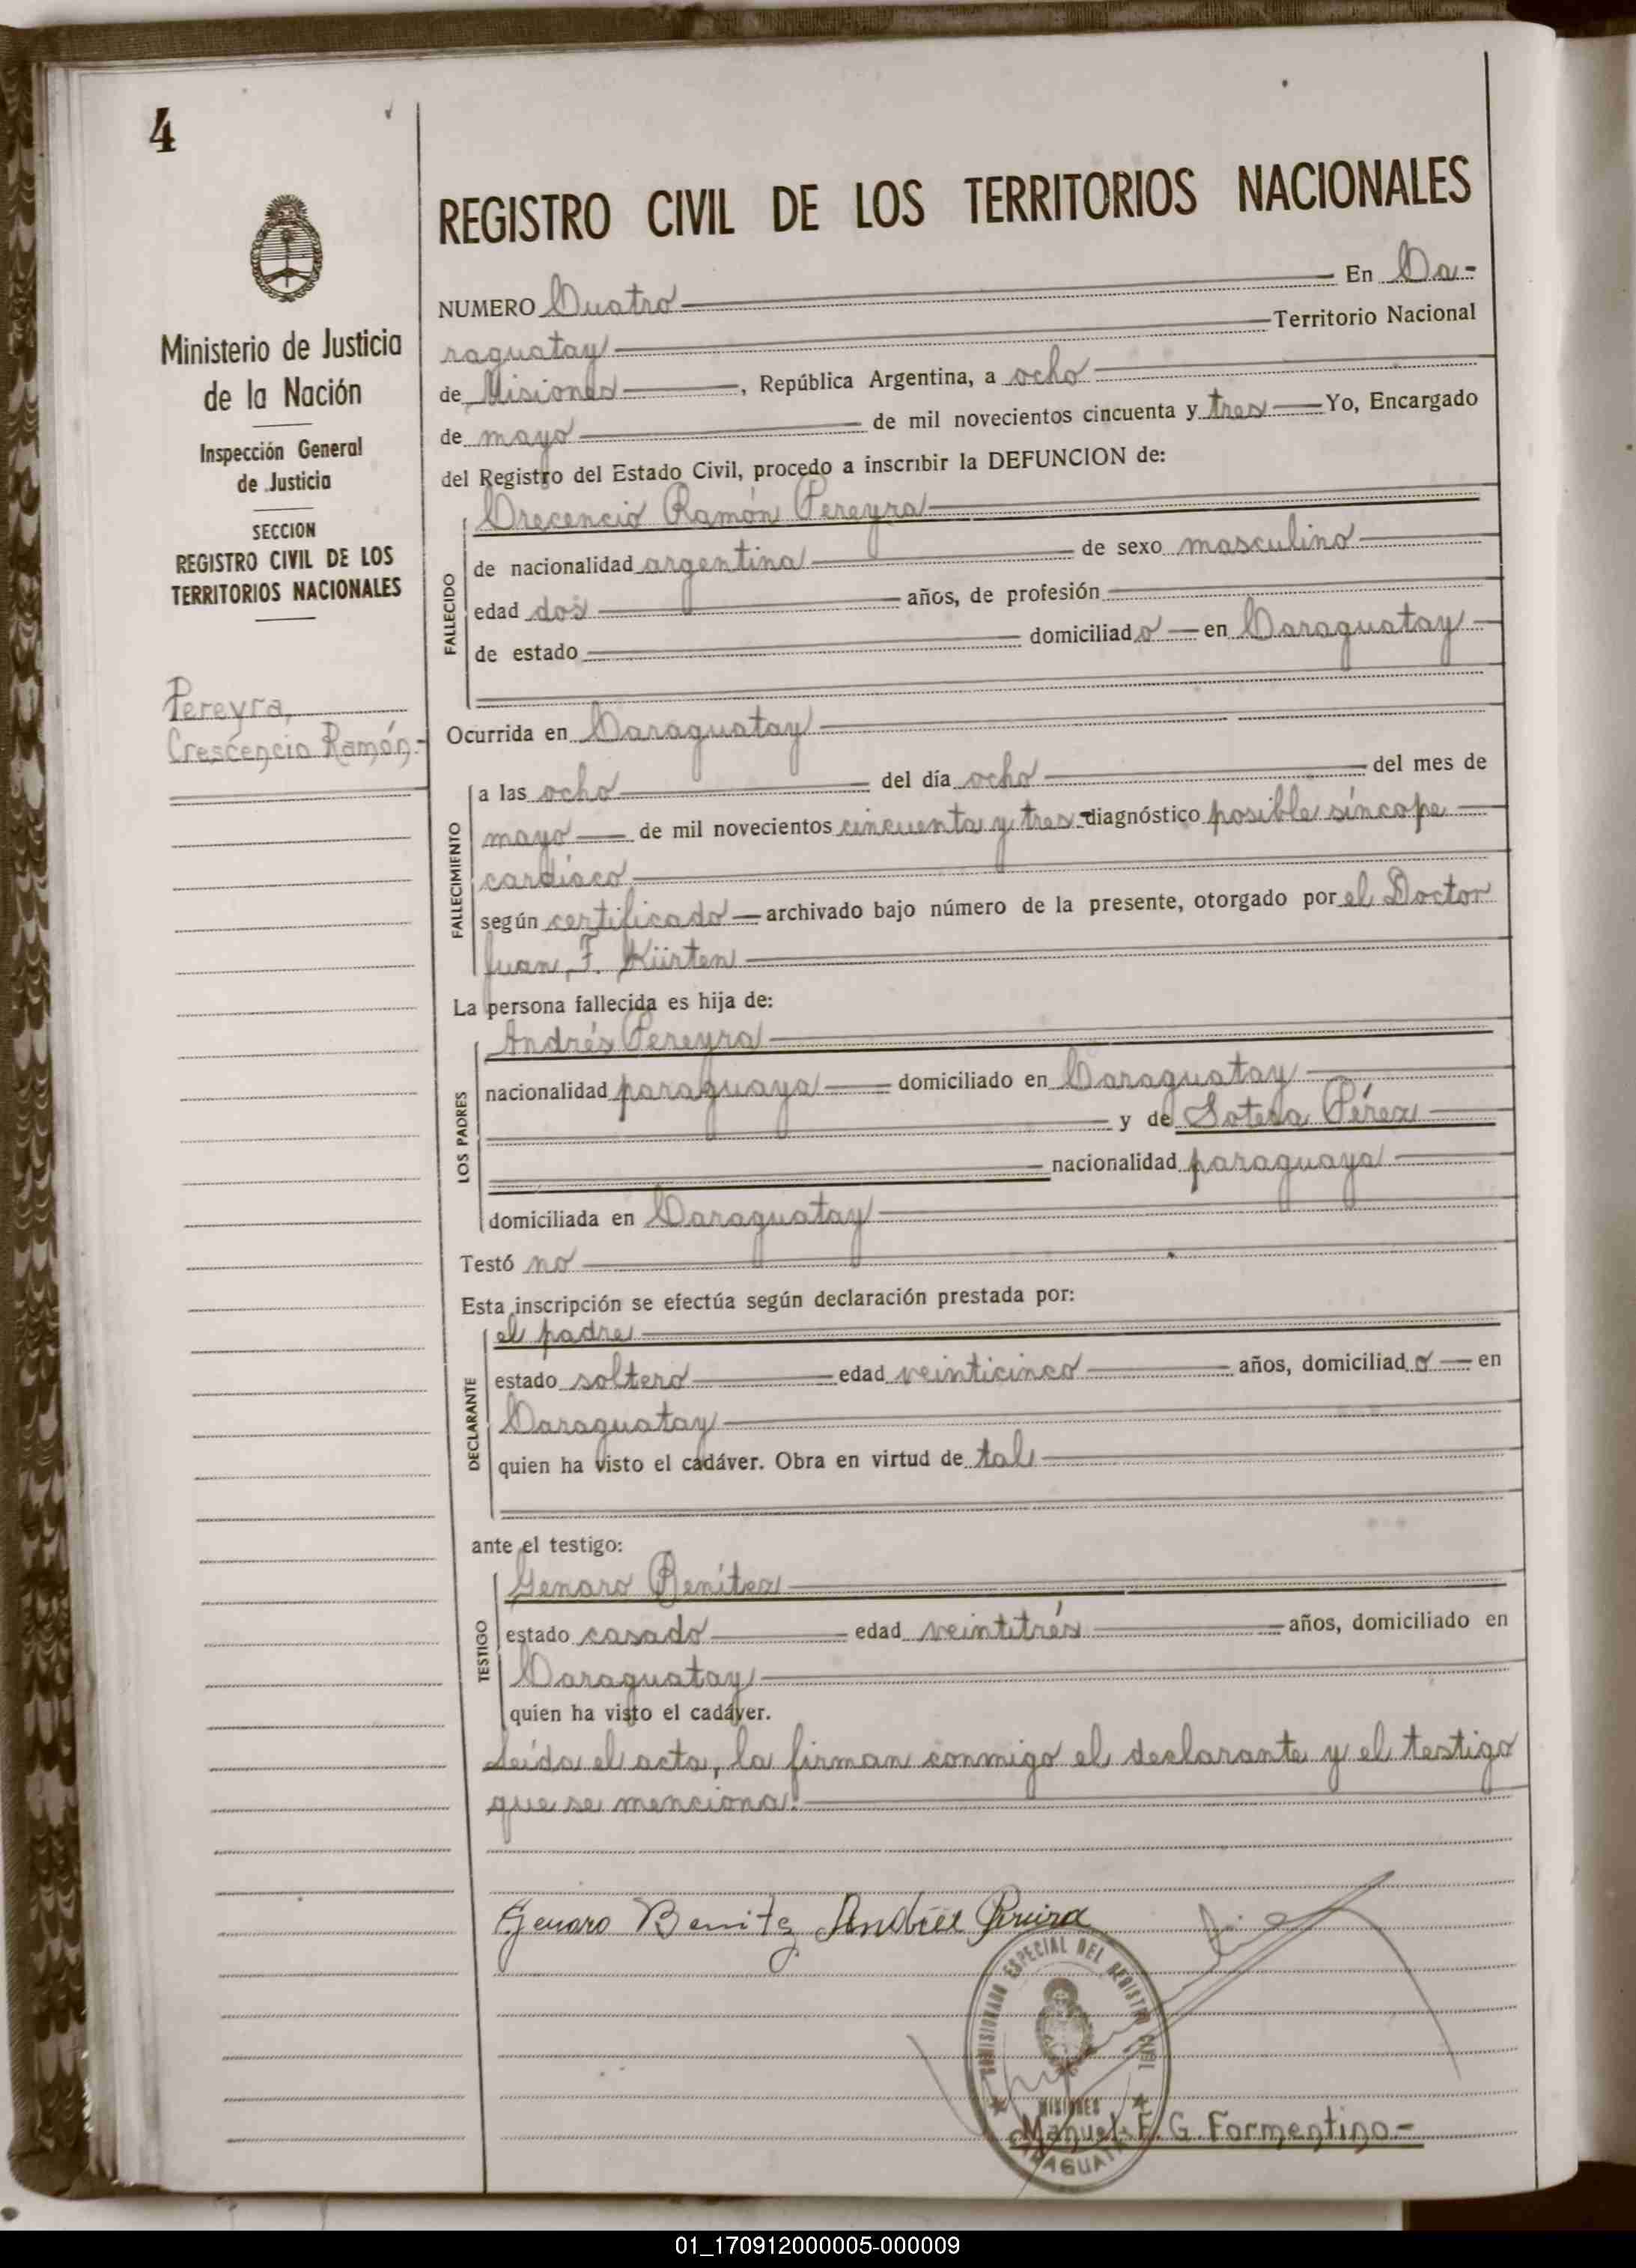 4
Ministerio de Justicia
de la Nación
Inspección General
de Justicia
SECCION
REGISTRO CIVIL DE LOS
TERRITORIOS NACIONALES
Pereyra,
Crescencio Ramón.-
REGISTRO CIVIL DE LOS TERRITORIOS NACIONALES
NUMERO Cuatro En Ca-
raguatay Territorio Nacional
de Misiones, República Argentina, a ocho
de mayo de mil novecientos cincuenta y tres Yo, Encargado
del Registro del Estado Civil, procedo a inscribir la DEFUNCION de:
FALLECIDO
Crecencio Ramón Pereyra
de nacionalidad argentina de sexo masculino
edad dos años, de profesión
de estado domiciliado en Caraguatay
Ocurrida en Caraguatay
FALLECIMIENTO
a las ocho del día ocho del mes de
mayo de mil novecientos cincuenta y tres diagnóstico posible síncope
cardíaco
según certificado archivado bajo número de la presente, otorgado por el Doctor
Juan F. Kürten
La persona fallecida es hija de:
LOS PADRES
Andrés Pereyra
nacionalidad paraguaya domiciliado en Caraguatay
y de Sotera Pérez
nacionalidad paraguaya
domiciliada en Caraguatay
Testó no
Esta inscripción se efectúa según declaración prestada por:
DECLARANTE
el padre
estado soltero edad veinticinco años, domiciliado en
Caraguatay
quien ha visto el cadáver. Obra en virtud de tal
ante el testigo:
TESTIGO
Genaro Benítez
estado casado edad veintitrés años, domiciliado en
Caraguatay
quien ha visto el cadáver.
Leída el acta, la firman conmigo el declarante y el testigo
que se menciona.
Genaro Benitz Andrée Pereira
COMISIONADO ESPECIAL DEL REGISTRO CIVIL
MISIONES
CARAGUATAY
Manuel F. G. Formentino.-
01_170912000005-000009